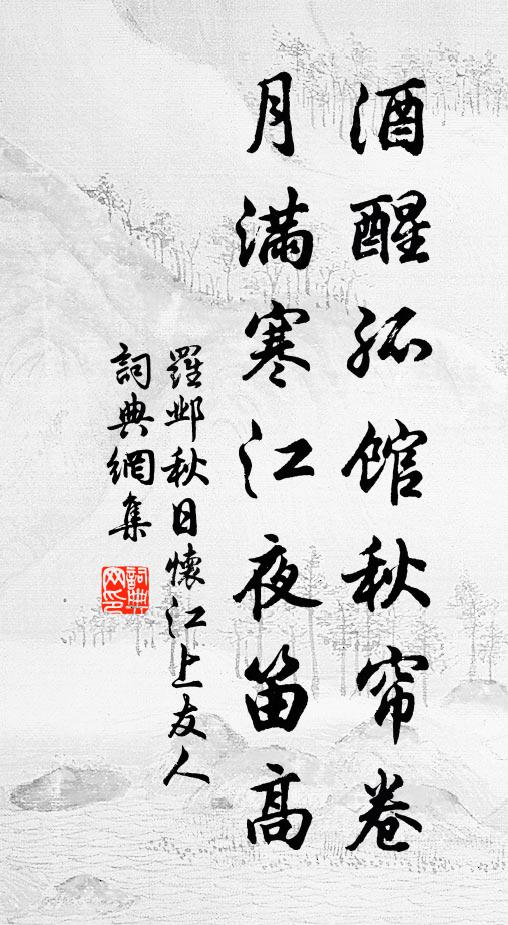 酒醒孤馆秋帘卷
月满寒江夜笛高
羅邺秋日懷江上友人
詞典網集
詞典網印